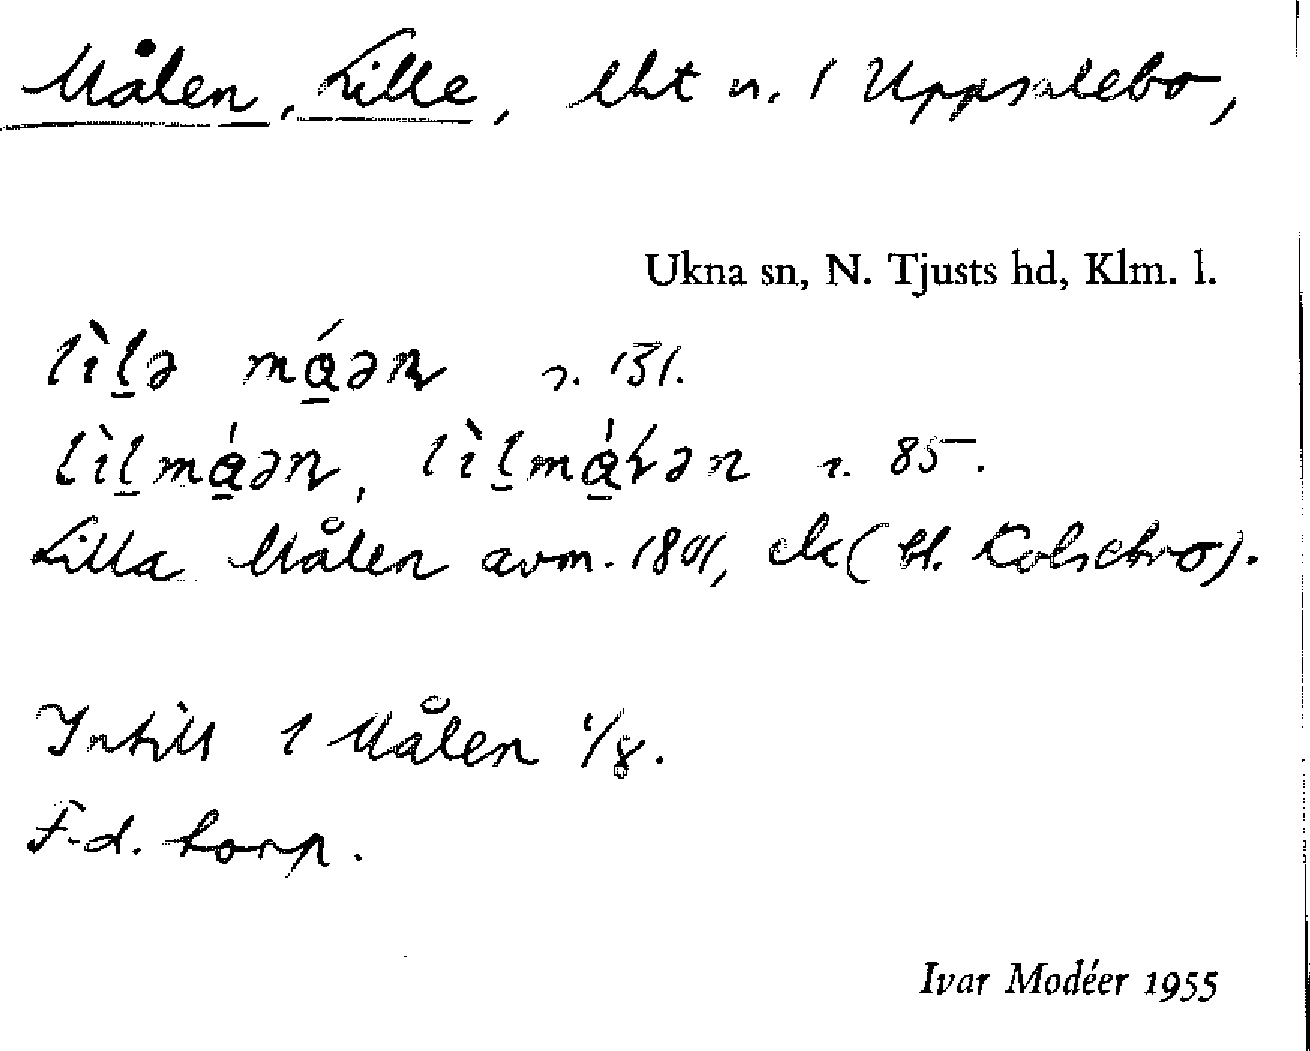 Målen, Lille, lht u. 1 Uppsalebo,
Ukna sn, N. Tjusts hd, Klm. l.
lìl̠ə mɑ̠́ən s. 131.
lìl̠mɑ̠́ən, lìl̠mɑ̠́ɽən s. 85.
Lilla Målen avm. 1801, ek (bl. Kolsebro).
Intill 1 Målen 1/8.
F.d. torp.
Ivar Modéer 1955